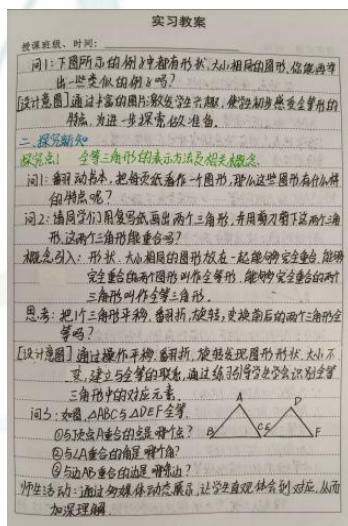 实习教案
授课班级、时间:
问1:下图所示的例子中都有形状、大小相同的图形,你能再举
出一些类似的例子吗?
[设计意图]通过丰富的图片激发学生兴趣,使学生初步感受全等形的
特点,为进一步探索做准备。
二、探究新知
探究点1 全等三角形的表示方法及相关概念
问1:翻动书本,把每页纸看作一个图形,那么这些图形有什么样
的特点呢?
问2:请同学们用复写纸画出两个三角形,并用剪刀剪下这两个三角
形,这两个三角形能重合吗?
概念引入:形状、大小相同的图形放在一起能够完全重合,能够
完全重合的两个图形叫作全等形,能够完全重合的两个
三角形叫作全等三角形。
思考:把1个三角形平移、翻折、旋转,变换前后的两个三角形全
等吗?
[设计意图]通过操作平移、翻折、旋转发现图形形状、大小不
变,建立与全等的联系,通过练习引导学生学会识别全等
三角形中的对应元素。
问3:如图,△ABC与△DEF全等.
①与顶点A重合的点是哪个点?
②与∠A重合的角是哪个角?
③与边AB重合的边是哪条边?
A D
B C E F
师生活动:通过多媒体动态展示,让学生直观体会到对应,从而
加深理解.